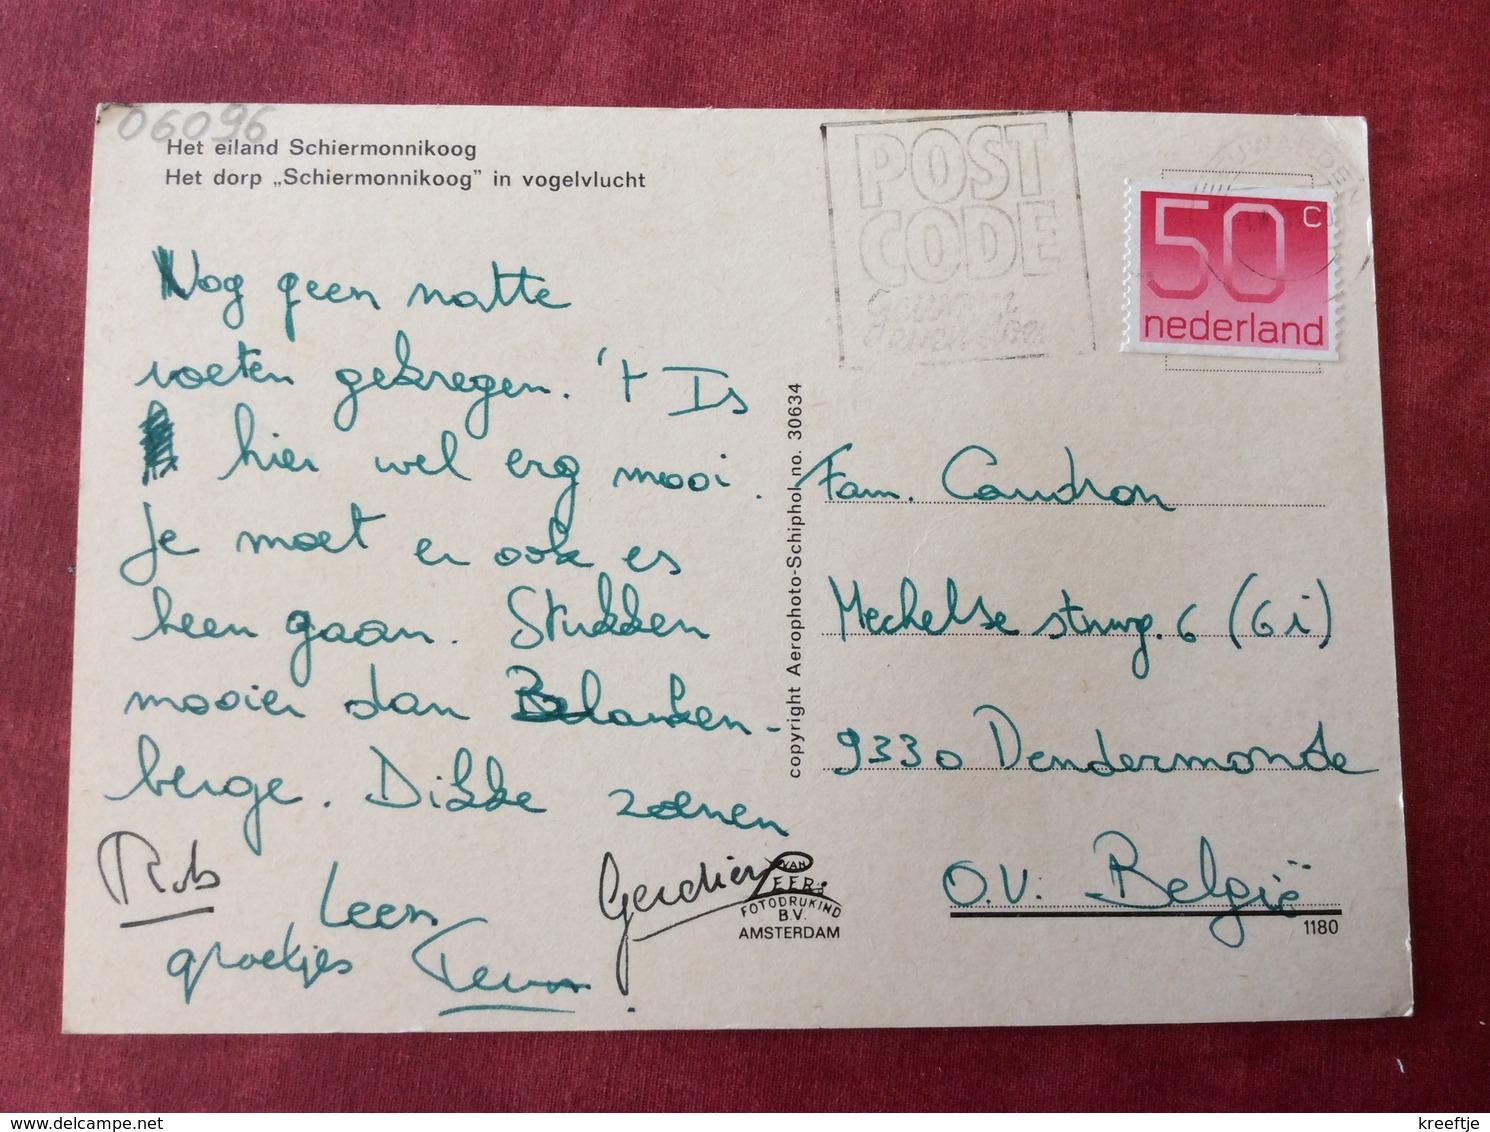 06096
Het eiland Schiermonnikoog
Het dorp „Schiermonnikoog" in vogelvlucht
POST
CODE
Gewoon
even doen
50 c
nederland
Nog geen natte
voeten gekregen. 't Is
hier wel erg mooi.
Je moet er ook es
heen gaan. Stukken
mooier dan Blanken-
berge. Dikke zoenen
Rob
Leen
Gerdien
groetjes Teun.
copyright Aerophoto-Schiphol no. 30634
Fam. Caudron
Mechelse stwg. 6 (Gi)
9330 Dendermonde
O.V. België
VAN
LEER
FOTODRUKIND
B.V.
AMSTERDAM
1180
kreeftje